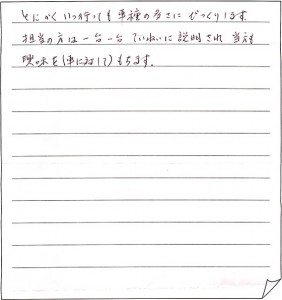 とにかくいつ行っても車種の多さにびっくりします
担当の方は一台一台ていねいに説明され 当方も
興味を(車に対して)もちます。